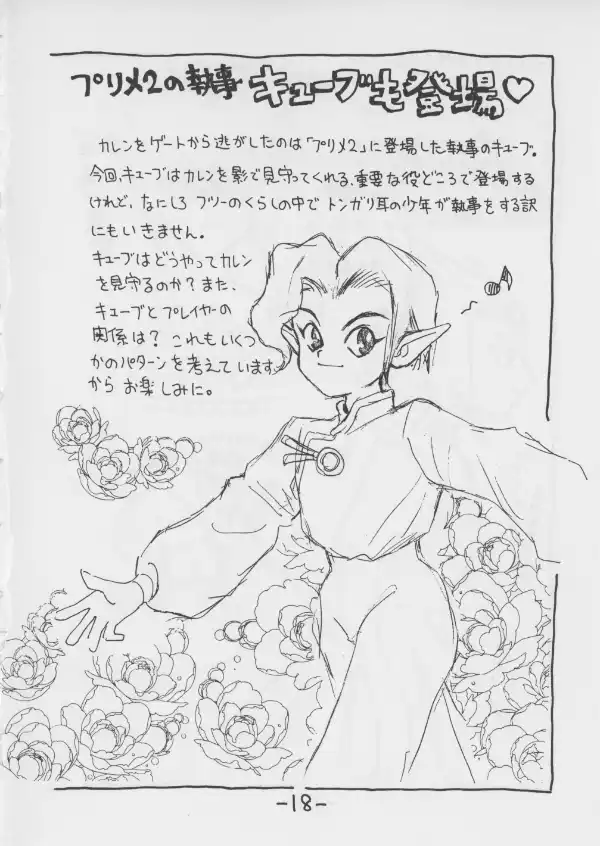 プリメ2の執事 キューブも登場♡
カレンをゲートから逃がしたのは「プリメ2」に登場した執事のキューブ。
今回、キューブはカレンを影で見守ってくれる、重要な役どころで登場する
けれど、なにしろ フツーのくらしの中で トンガリ耳の少年が執事をする訳
にもいきません。
キューブはどうやってカレン
を見守るのか？また、
キューブとプレイヤーの
関係は？ これもいくつ
かのパターンを考えています
から お楽しみに。
-18-